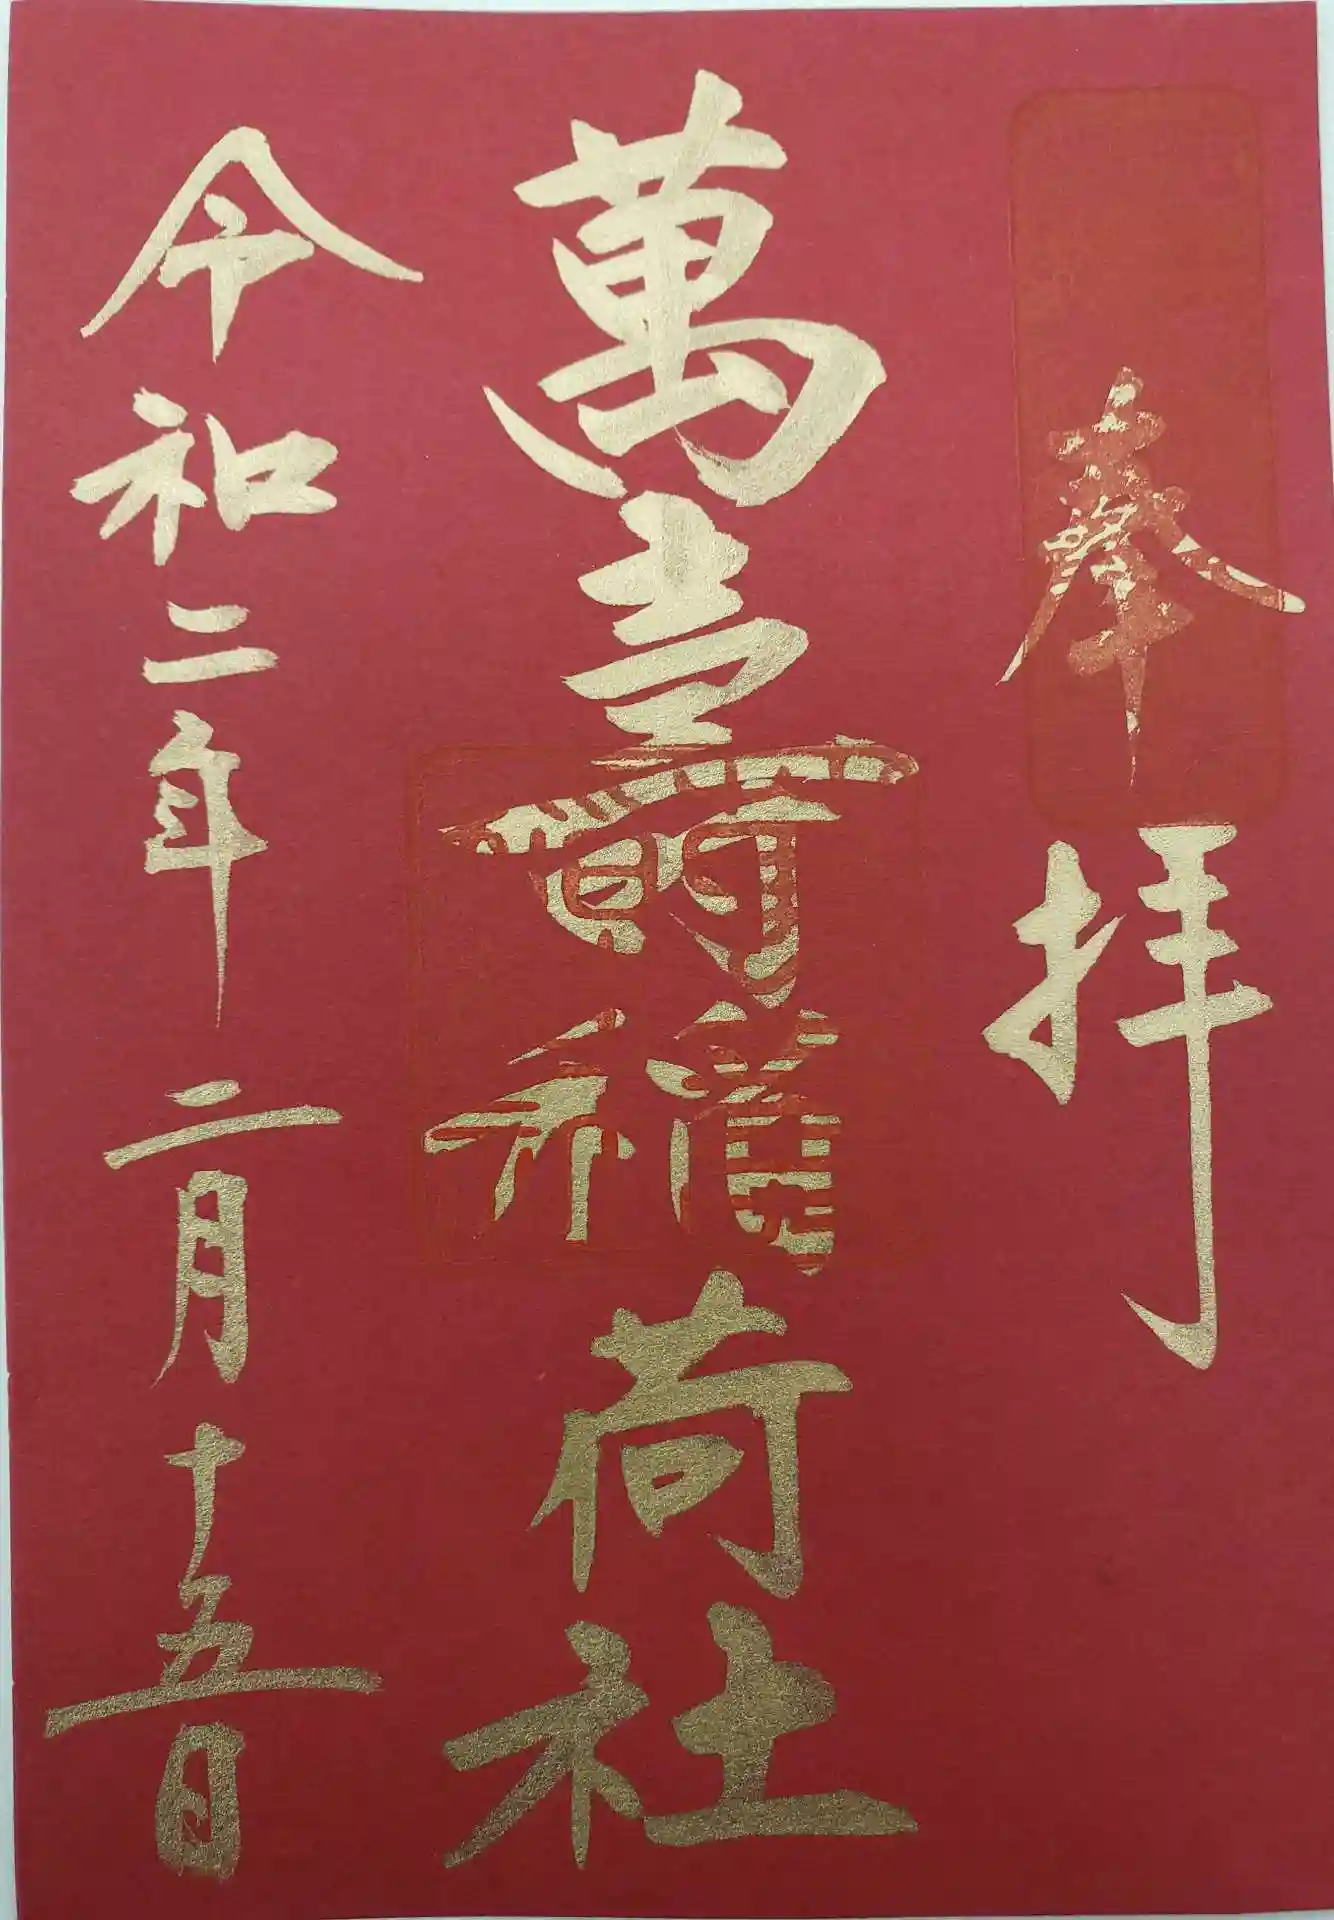 奉拝
萬壽稲荷社
令和二年二月十五日